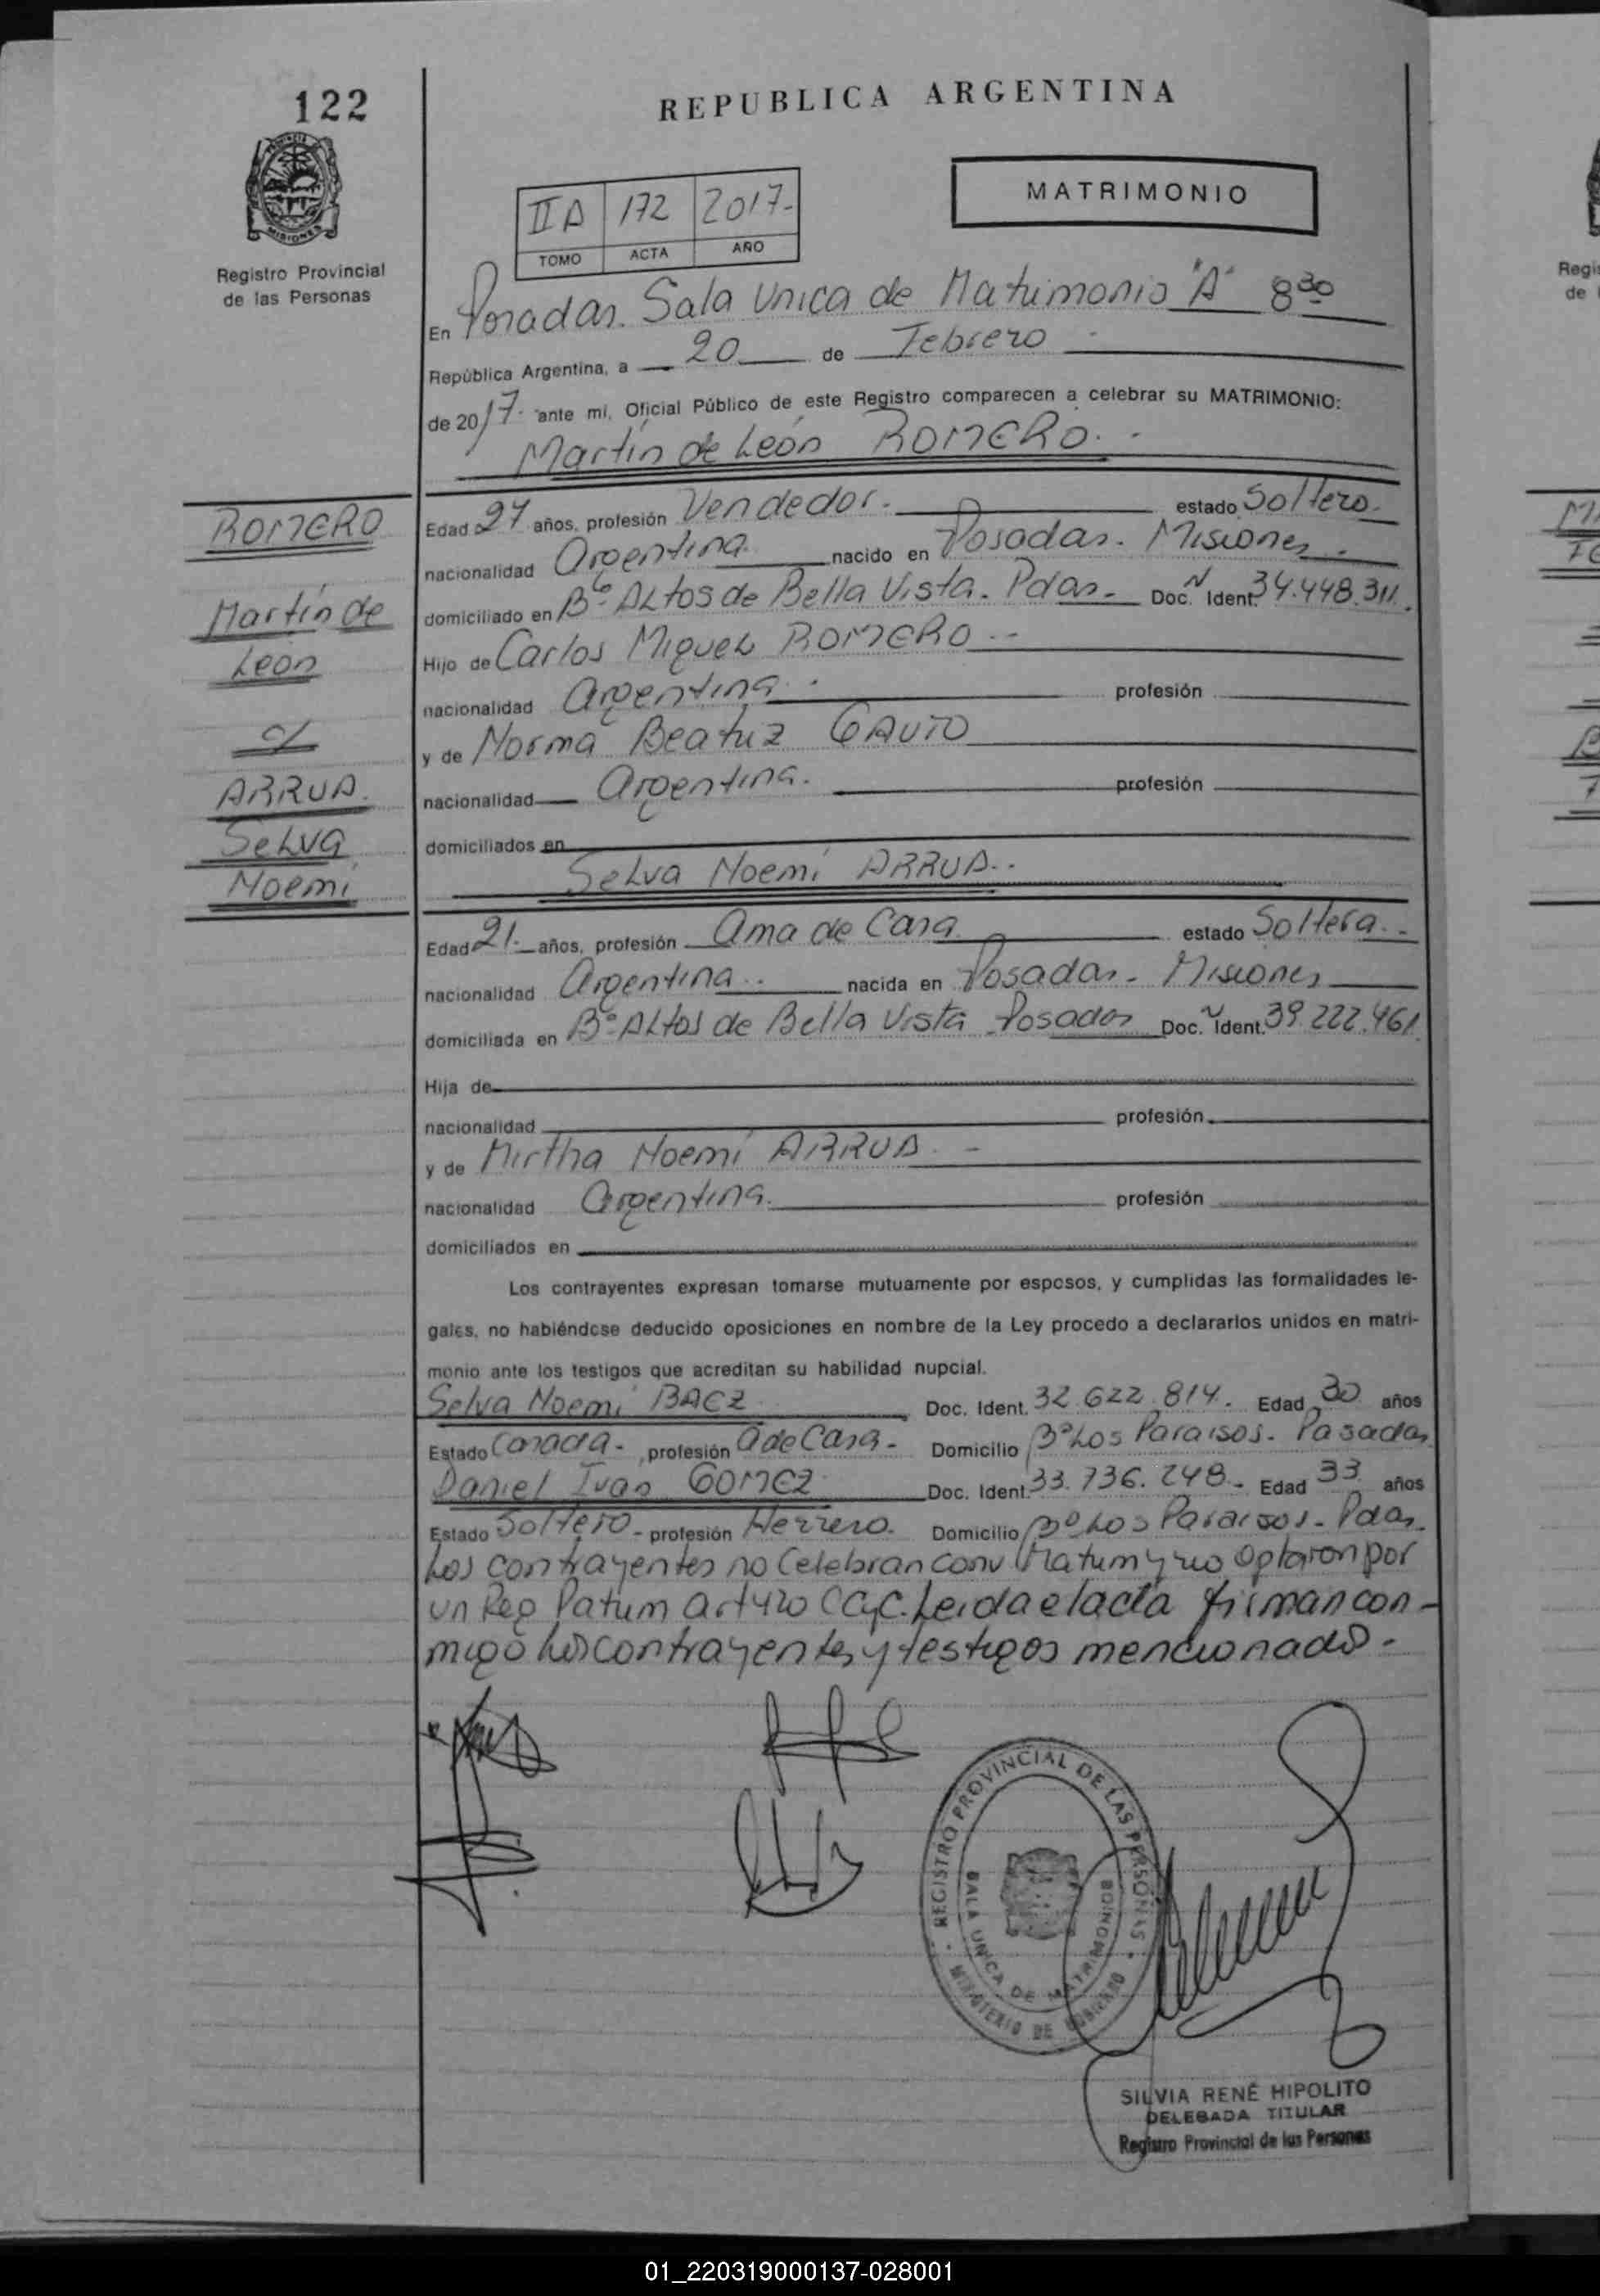 122
REPUBLICA ARGENTINA
MISIONES
Registro Provincial
de las Personas
IIA 172 2017-
TOMO ACTA AÑO
MATRIMONIO
En Posadas. Sala Unica de Matrimonio "A" 8 30
República Argentina, a 20 de Febrero
de 2017- ante mí, Oficial Público de este Registro comparecen a celebrar su MATRIMONIO:
Martín de León ROMERO.-
ROMERO
Martín de
León
c/
ARRUA.
Selva
Noemí
Edad 27 años, profesión Vendedor. estado Soltero.
nacionalidad Argentina nacido en Posadas. Misiones.
domiciliado en Bº ALtos de Bella Vista. Pdas. Doc. N Ident. 34.448.311.
Hijo de Carlos Miguel ROMERO.-
nacionalidad Argentina. profesión
y de Norma Beatriz GAUTO
nacionalidad Argentina. profesión
domiciliados en
Selva Noemí ARRUA..
Edad 21. años, profesión Ama de Casa estado Soltera.-
nacionalidad Argentina.. nacida en Posadas. Misiones
domiciliada en Bº ALtos de Bella Vista Posadas Doc. N Ident. 39.222.461
Hija de
nacionalidad profesión
y de Mirtha Noemí ARRUA. -
nacionalidad Argentina. profesión
domiciliados en
Los contrayentes expresan tomarse mutuamente por esposos, y cumplidas las formalidades le-
gales, no habiéndose deducido oposiciones en nombre de la Ley procedo a declararlos unidos en matri-
monio ante los testigos que acreditan su habilidad nupcial.
Selva Noemi BAEZ Doc. Ident. 32.622.814. Edad 30 años
Estado Casada. profesión A de Casa. Domicilio Bº Los Paraisos. Posadas
Daniel Ivan GOMEZ Doc. Ident. 33.736.248. Edad 33 años
Estado Soltero. profesión Herrero. Domicilio Bº Los Paraisos. Pdas.
Los contrayentes no Celebran conv Matrim y no Optaron por
un Reg Patrim art 420 CCyC. Leida el acta firman con-
migo los contrayentes y testigos mencionado.
REGISTRO PROVINCIAL DE LAS PERSONAS
SALA UNICA DE MATRIMONIOS
MINISTERIO DE GOBIERNO
SILVIA RENÉ HIPOLITO
DELEGADA TITULAR
Registro Provincial de las Personas
Regi
de
01_220319000137-028001